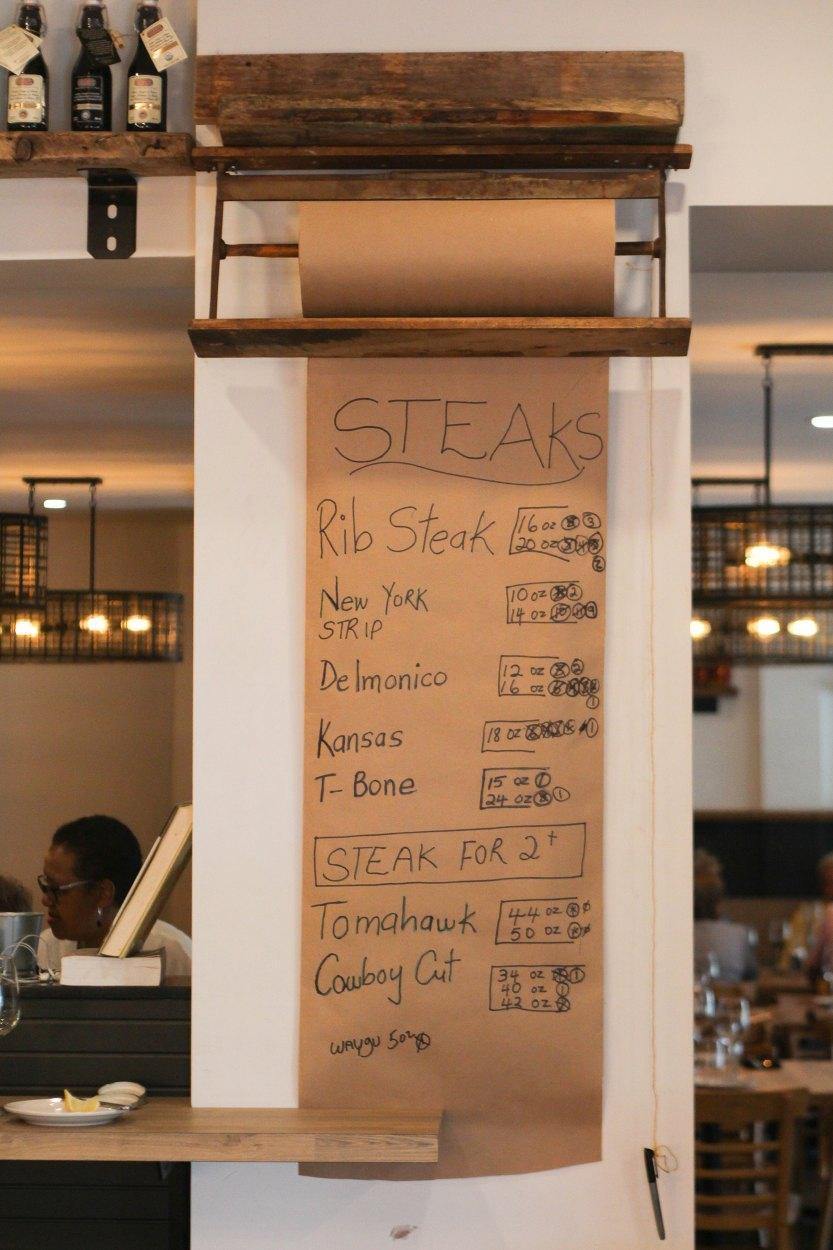 STEAKS
Rib Steak 16 oz 3
20 oz 2
New YORK 10 oz 2
STRIP 14 oz
Delmonico 12 oz
16 oz 1
Kansas 18 oz 1
T-Bone 15 oz
24 oz 1
STEAK FOR 2+
Tomahawk 44 oz
50 oz
Cowboy Cut 34 oz 1
40 oz 1
42 oz
WAYGU 5oz